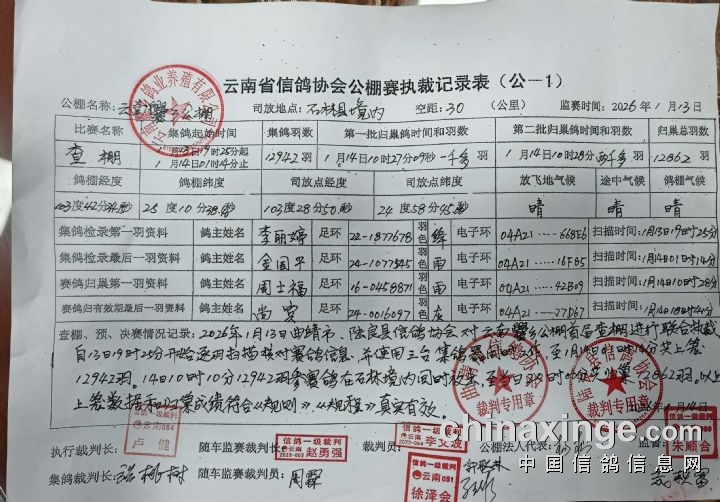 云南省信鸽协会公棚赛执裁记录表（公—1）
公棚名称: 云南 公棚 司放地点: 石林县境内 空距: 30 （公里） 监赛时间: 2026年1月13日
比赛名称 集鸽起始时间 集鸽羽数 第一批归巢鸽时间和羽数 第二批归巢鸽时间和羽数 归巢总羽数
查棚 1月13日19时25分起 1月14日01时14分止 12942羽 1月14日10时27分09秒 一千多羽 1月14日10时28分 两千多羽 12862羽
鸽棚经度 鸽棚纬度 司放点经度 司放点纬度 放飞地气候 途中气候 鸽棚气候
103度42分 秒 25度10分38秒 103度28分50秒 24度58分45秒 晴 晴 晴
集鸽检录第一羽资料 鸽主姓名 李丽婷 足环 22-1877678 羽色 绛 电子环 04A21……668E6 扫描时间:1月13日19时25分
集鸽检录最后一羽资料 鸽主姓名 金国平 足环 24-1077545 羽色 雨 电子环 04A21……16F05 扫描时间:1月14日01时14分
赛鸽归巢第一羽资料 鸽主姓名 周士福 足环 16-0458871 羽色 雨 电子环 04A21……42B09 扫描时间:1月14日10时28分
赛鸽归有效期最后一羽资料 鸽主姓名 尚宾 足环 24-0016097 羽色 灰 电子环 04A21……77D67 扫描时间:1月14日18时24分
查棚、预、决赛情况记录: 2026年1月13日曲靖市、陆良县信鸽协会对云南 乡公棚首届查棚进行联合执裁
自13日19时25分开始逐羽扫描核对赛鸽信息，并使用三台集鸽器同时工作，至1月14日01时14分共上笼
12942羽。14日10时10分12942羽参赛鸽在石林境内同时放飞，至 日 时00分共归巢12862羽。以上
上笼数据和归巢成绩符合《规则》、《规程》真实有效。
裁判专用章 裁判专用章
执行裁判长: 云南084 卢健 随车监赛裁判长: 信鸽一级裁判 赵勇强 裁判员: 信鸽一级裁判 李文波 公棚法人代表: 监督 朱顺合
集鸽裁判长: 张桃树 随车监赛裁判员: 周霖 信鸽一级裁判 云南051 徐泽会
chinaxinge.com
中国信鸽信息网